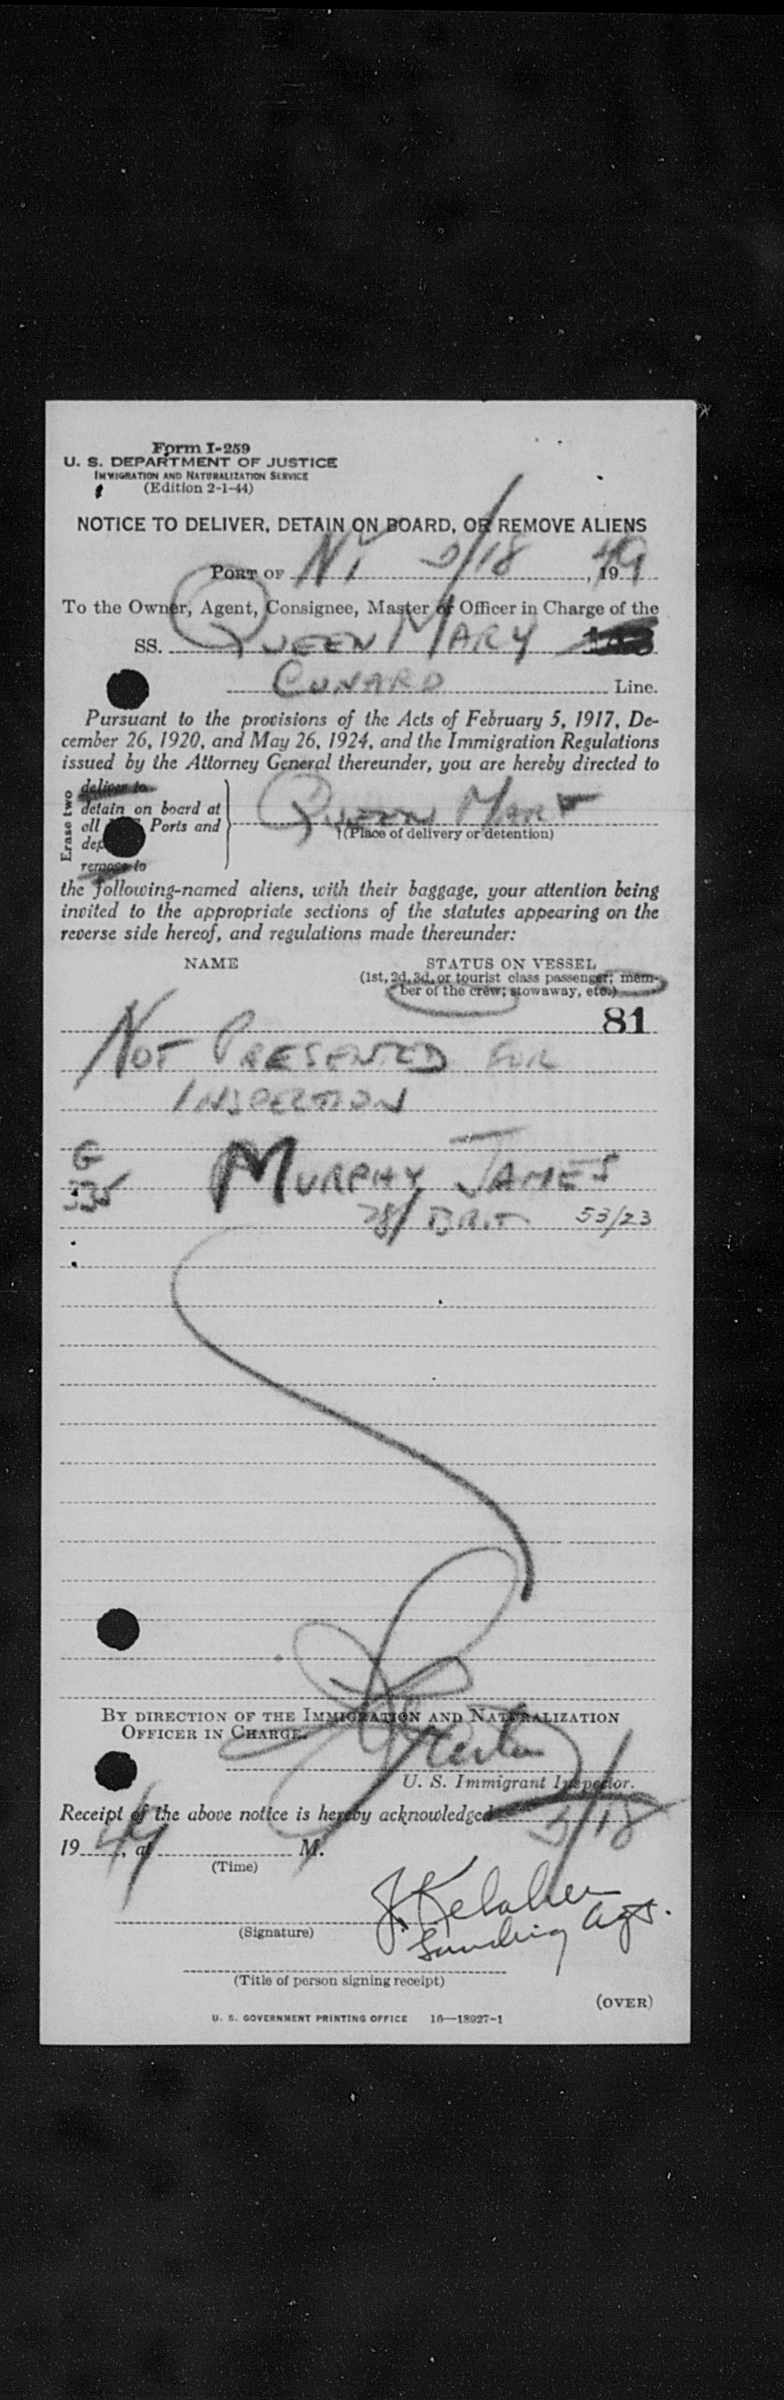 Form I-259
U. S. DEPARTMENT OF JUSTICE
IMMIGRATION AND NATURALIZATION SERVICE
(Edition 2-1-44)
NOTICE TO DELIVER, DETAIN ON BOARD, OR REMOVE ALIENS
PORT OF NY /18, 1949
To the Owner, Agent, Consignee, Master or Officer in Charge of the
SS. QUEEN MARY
CUNARD Line.
Pursuant to the provisions of the Acts of February 5, 1917, De-
cember 26, 1920, and May 26, 1924, and the Immigration Regulations
issued by the Attorney General thereunder, you are hereby directed to
Erase two
deliver to
detain on board at
all Ports and
dep
remove to
QUEEN MARY
(Place of delivery or detention)
the following-named aliens, with their baggage, your attention being
invited to the appropriate sections of the statutes appearing on the
reverse side hereof, and regulations made thereunder:
NAME STATUS ON VESSEL
(1st, 2d, 3d, or tourist class passenger; mem-
ber of the crew; stowaway, etc.)
81
NOT PRESENTED FOR
INSPECTION
G MURPHY JAMES
335
28/ BRIT 53/23
BY DIRECTION OF THE IMMIGRATION AND NATURALIZATION
OFFICER IN CHARGE.
U. S. Immigrant Inspector.
Receipt of the above notice is hereby acknowledged /18
1949, at M.
(Time)
J. Kelaher
(Signature)
Landing Agt.
(Title of person signing receipt)
(OVER)
U. S. GOVERNMENT PRINTING OFFICE 16—18927-1